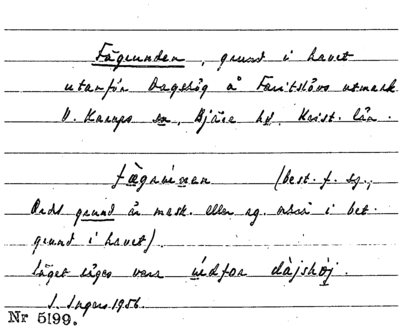 Fägrunden, grund i havet
utanför Dagshög å Faritslövs utmark
V. Karups sn, Bjäre hd, Krist. län.
(best. f. sg.,
Ordet grund är mask. eller ag. när i bet.
grund i havet)
Läget säges vara
S. Ingers 1956.
Nr 5199.